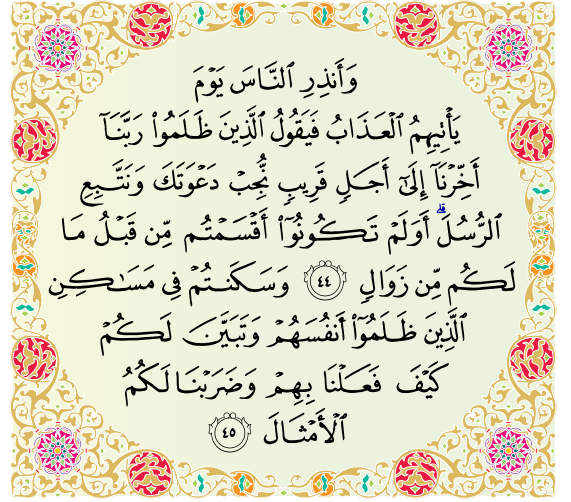 وَأَنذِرِ ٱلنَّاسَ يَوْمَ
يَأْتِيهِمُ ٱلْعَذَابُ فَيَقُولُ ٱلَّذِينَ ظَلَمُوا۟ رَبَّنَآ
أَخِّرْنَآ إِلَىٰٓ أَجَلٍ قَرِيبٍ نُّجِبْ دَعْوَتَكَ وَنَتَّبِعِ
ٱلرُّسُلَ ۗ أَوَلَمْ تَكُونُوٓا۟ أَقْسَمْتُم مِّن قَبْلُ مَا
لَكُم مِّن زَوَالٍ ٤٤ وَسَكَنتُمْ فِى مَسَٰكِنِ
ٱلَّذِينَ ظَلَمُوٓا۟ أَنفُسَهُمْ وَتَبَيَّنَ لَكُمْ
كَيْفَ فَعَلْنَا بِهِمْ وَضَرَبْنَا لَكُمُ
ٱلْأَمْثَالَ ٤٥